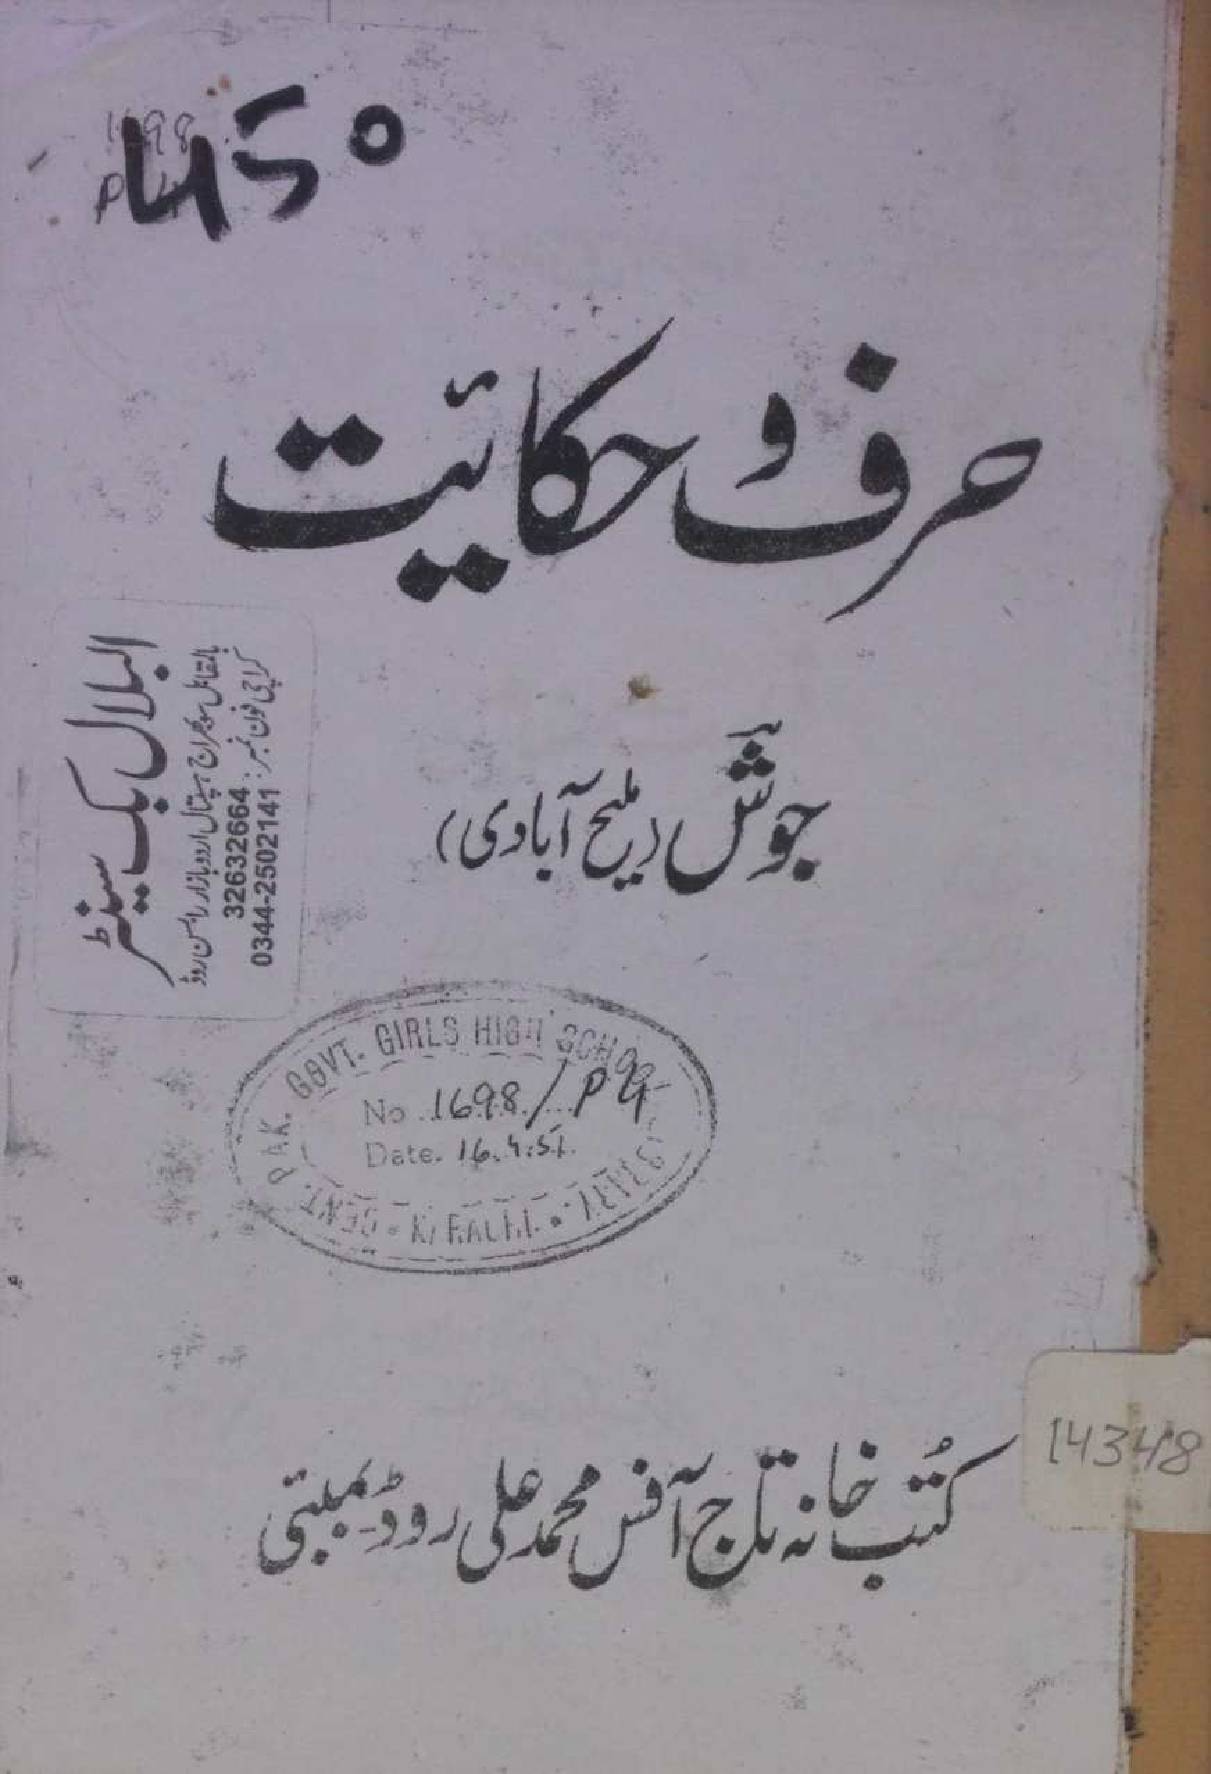 1698
450
حرف و حکائیت
جوش (ملیح آبادی)
البلال بک سینٹر
بالمقابل سوبھراج ہسپتال اردو بازار رابسن روڈ
کراچی فون نمبر: 32632664
0344-2502141
CENT. PAK. GOVT. GIRLS HIGH SCHOOL
No. 1698/P
Date. 16.4.51.
KARACHI.
کُتب خانہ تاج آفس محمد علی روڈ۔ بمبئی
14348